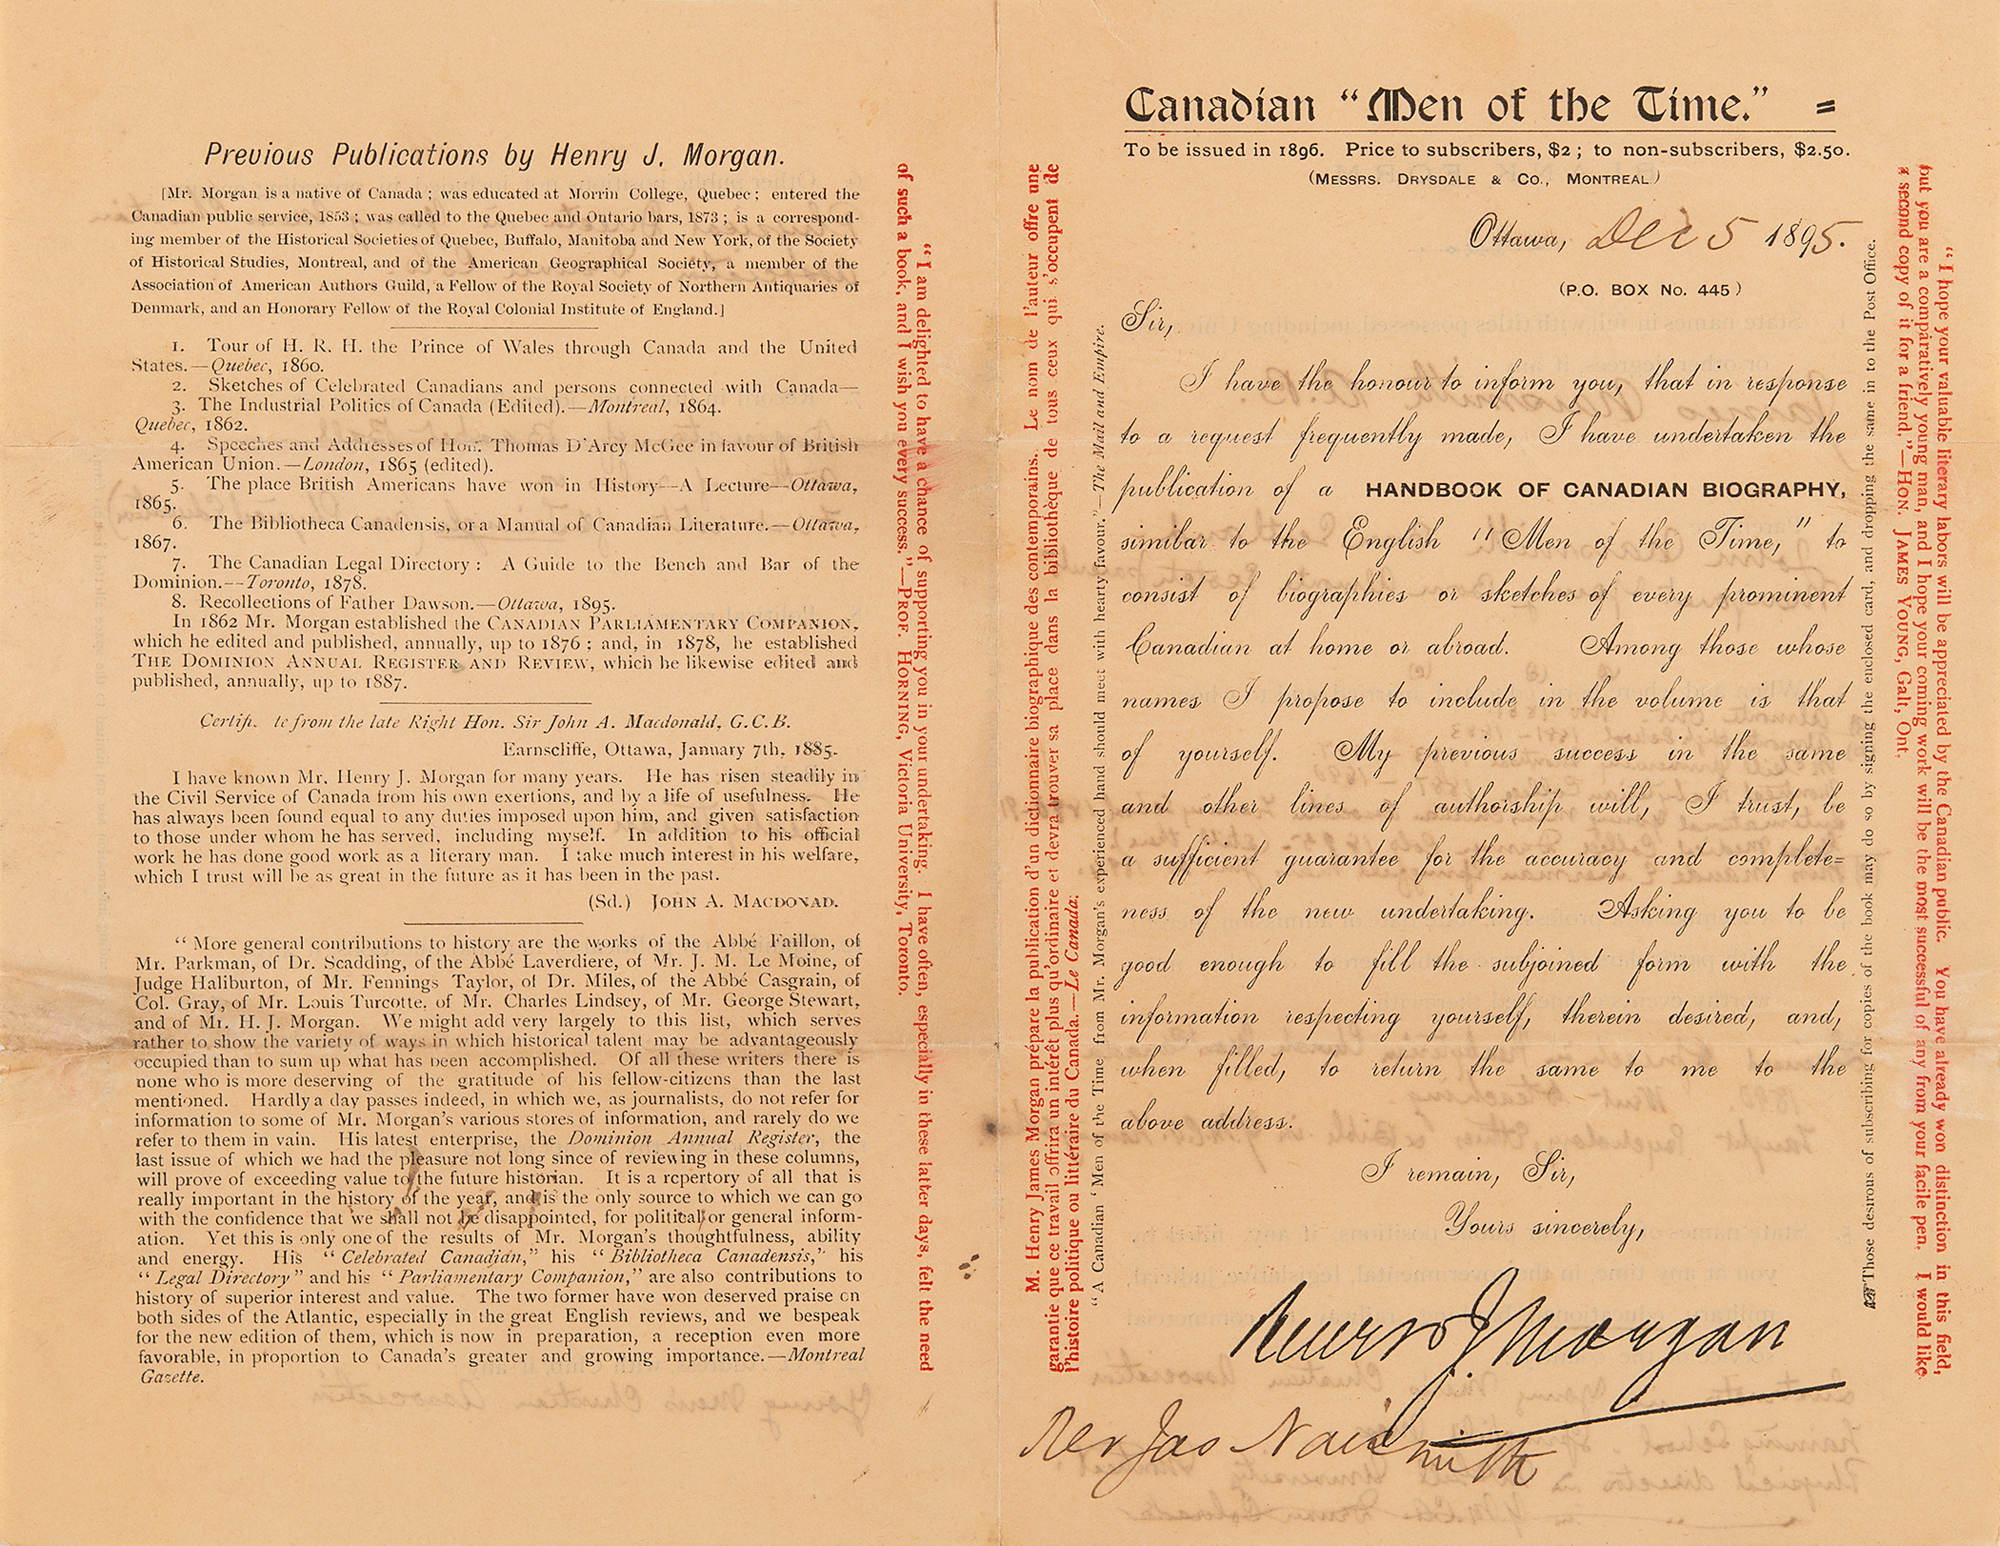 Previous Publications by Henry J. Morgan.
[Mr. Morgan is a native of Canada; was educated at Morrin College, Quebec; entered the
Canadian public service, 1853; was called to the Quebec and Ontario bars, 1873; is a correspond-
ing member of the Historical Societies of Quebec, Buffalo, Manitoba and New York, of the Society
of Historical Studies, Montreal, and of the American Geographical Society, a member of the
Association of American Authors Guild, a Fellow of the Royal Society of Northern Antiquaries of
Denmark, and an Honorary Fellow of the Royal Colonial Institute of England.]
1. Tour of H. R. H. the Prince of Wales through Canada and the United
States.—Quebec, 1860.
2. Sketches of Celebrated Canadians and persons connected with Canada—
3. The Industrial Politics of Canada (Edited).—Montreal, 1864.
Quebec, 1862.
4. Speeches and Addresses of Hon. Thomas D'Arcy McGee in favour of British
American Union.—London, 1865 (edited).
5. The place British Americans have won in History—A Lecture—Ottawa,
1865.
6. The Bibliotheca Canadensis, or a Manual of Canadian Literature.—Ottawa,
1867.
7. The Canadian Legal Directory: A Guide to the Bench and Bar of the
Dominion.--Toronto, 1878.
8. Recollections of Father Dawson.—Ottawa, 1895.
In 1862 Mr. Morgan established the CANADIAN PARLIAMENTARY COMPANION,
which he edited and published, annually, up to 1876; and, in 1878, he established
THE DOMINION ANNUAL REGISTER AND REVIEW, which he likewise edited and
published, annually, up to 1887.
Certifi. te from the late Right Hon. Sir John A. Macdonald, G.C.B.
Earnscliffe, Ottawa, January 7th, 1885.
I have known Mr. Henry J. Morgan for many years. He has risen steadily in
the Civil Service of Canada from his own exertions, and by a life of usefulness. He
has always been found equal to any duties imposed upon him, and given satisfaction
to those under whom he has served, including myself. In addition to his official
work he has done good work as a literary man. I take much interest in his welfare,
which I trust will be as great in the future as it has been in the past.
(Sd.) JOHN A. MACDONAD.
"More general contributions to history are the works of the Abbé Faillon, of
Mr. Parkman, of Dr. Scadding, of the Abbé Laverdiere, of Mr. J. M. Le Moine, of
Judge Haliburton, of Mr. Fennings Taylor, of Dr. Miles, of the Abbé Casgrain, of
Col. Gray, of Mr. Louis Turcotte, of Mr. Charles Lindsey, of Mr. George Stewart,
and of Mr. H. J. Morgan. We might add very largely to this list, which serves
rather to show the variety of ways in which historical talent may be advantageously
occupied than to sum up what has been accomplished. Of all these writers there is
none who is more deserving of the gratitude of his fellow-citizens than the last
mentioned. Hardly a day passes indeed, in which we, as journalists, do not refer for
information to some of Mr. Morgan's various stores of information, and rarely do we
refer to them in vain. His latest enterprise, the Dominion Annual Register, the
last issue of which we had the pleasure not long since of reviewing in these columns,
will prove of exceeding value to the future historian. It is a repertory of all that is
really important in the history of the year, and is the only source to which we can go
with the confidence that we shall not be disappointed, for political or general inform-
ation. Yet this is only one of the results of Mr. Morgan's thoughtfulness, ability
and energy. His "Celebrated Canadian," his "Bibliotheca Canadensis," his
"Legal Directory" and his "Parliamentary Companion," are also contributions to
history of superior interest and value. The two former have won deserved praise on
both sides of the Atlantic, especially in the great English reviews, and we bespeak
for the new edition of them, which is now in preparation, a reception even more
favorable, in proportion to Canada's greater and growing importance.—Montreal
Gazette.
"I am delighted to have a chance of supporting you in your undertaking. I have often, especially in these latter days, felt the need
of such a book, and I wish you every success."—PROF. HORNING, Victoria University, Toronto.
M. Henry James Morgan prépare la publication d'un dictionnaire biographique des contemporains. Le nom de l'auteur offre une
garantie que ce travail offrira un intérêt plus qu'ordinaire et devra trouver sa place dans la bibliothèque de tous ceux qui s'occupent de
l'histoire politique ou littéraire du Canada.—Le Canada.
"A Canadian 'Men of the Time' from Mr. Morgan's experienced hand should meet with hearty favour."—The Mail and Empire.
Canadian "Men of the Time."
To be issued in 1896. Price to subscribers, $2; to non-subscribers, $2.50.
(MESSRS. DRYSDALE & CO., MONTREAL.)
Ottawa, Dec 5 1895.
(P.O. BOX No. 445)
Sir,
I have the honour to inform you, that in response
to a request frequently made, I have undertaken the
publication of a HANDBOOK OF CANADIAN BIOGRAPHY,
similar to the English "Men of the Time," to
consist of biographies or sketches of every prominent
Canadian at home or abroad. Among those whose
names I propose to include in the volume is that
of yourself. My previous success in the same
and other lines of authorship will, I trust, be
a sufficient guarantee for the accuracy and complete=
ness of the new undertaking. Asking you to be
good enough to fill the subjoined form with the
information respecting yourself, therein desired, and,
when filled, to return the same to me to the
above address.
I remain, Sir,
Yours sincerely,
Henry J. Morgan
Rev Jas Naismith
☞Those desirous of subscribing for copies of the book may do so by signing the enclosed card, and dropping the same in to the Post Office.
"I hope your valuable literary labors will be appreciated by the Canadian public. You have already won distinction in this field,
but you are a comparatively young man, and I hope your coming work will be the most successful of any from your facile pen. I would like
a second copy of it for a friend."—HON. JAMES YOUNG, Galt, Ont.